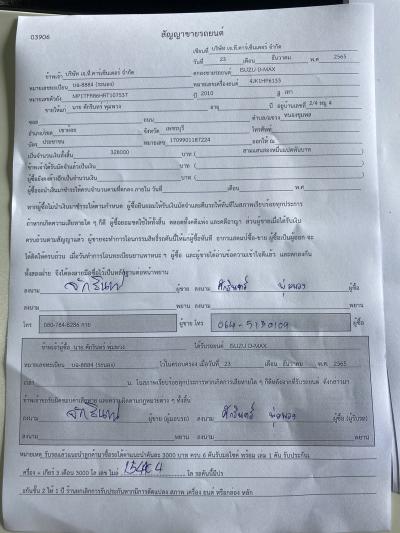 03906
สัญญาขายรถยนต์
เขียนที่ บริษัท เจ.ที.คาร์เซ็นเตอร์ จำกัด
วันที่ 23 เดือน ธันวาคม พ.ศ 2565
ข้าพเจ้า บริษัท เจ.ที.คาร์เซ็นเตอร์ จำกัด ตกลงขายรถยนต์ ISUZU D-MAX
หมายเลขทะเบียน บจ-8884 (ระนอง) หมายเลขเครื่องยนต์ 4JK1HP6155
หมายเลขตัวถัง ปี 2010 สี เทา
ขายให้แก่ นาย ศักรินทร์ พุ่มพวง อายุ ปี อยู่บ้านเลขที่ 2/4 หมู่ 4
ซอย ถนน ตำบล/แขวง หนองชุมพล
อำเภอ/เขต เขาย้อย จังหวัด เพชรบุรี โทรศัพท์
บัตร ประชาชน หมายเลข 1709901187224 ออกให้ ณ
เป็นจำนวนเงินทั้งสิ้น 328000 บาท ( สามแสนสองหมื่นแปดพันบาท )
ข้าพเจ้าได้รับมัดจำแล้วเป็นเงิน บาท ( )
ผู้ซื้อยังคงค้างอีกเป็นจำนวนเงิน บาท ( )
ผู้ซื้อจะนำเงินมาชำระให้ครบจำนวนตามที่ตกลง ภายใน วันที่ เดือน พ.ศ
หากผู้ซื้อไม่นำเงินมาชำระให้ตามกำหนด ผู้ซื้อยินยอมให้ริบเงินมัดจำและยืนยันว่าได้รับรถไปในสภาพเรียบร้อยทุกประการ
ถ้าหากเกิดความเสียหายใด ๆ ก็ดี ผู้ซื้อยอมชดใช้ให้ทั้งสิ้น ตลอดทั้งคดีแพ่ง และคดีอาญา ส่วนผู้ขายเมื่อได้รับเงิน
ครบถ้วนตามสัญญาแล้ว ผู้ขายจะทำการโอนกรรมสิทธิ์รถคันนี้ให้แก่ผู้ซื้อทันที
ทั้งสองฝ่าย จึงได้ลงลายมือชื่อไว้เป็นหลักฐานต่อหน้าพยาน
ลงนาม ผู้ขาย ลงนาม ศักรินทร์ พุ่มพวง ผู้ซื้อ
ลงนาม พยาน ลงนาม พยาน
โทร 080-784-8286 กาย ผู้ขาย โทร ผู้ซื้อ
ข้าพเจ้าผู้ซื้อ นาย ศักรินทร์ พุ่มพวง ได้รับรถยนต์ ISUZU D-MAX
หมายเลขทะเบียน บจ-8884 (ระนอง) ไว้ในครอบครอง เมื่อวันที่ 23 เดือน ธันวาคม พ.ศ. 2565
เวลา น. ในสภาพเรียบร้อยทุกประการหากเกิดความเสียหายใด ๆ ก็ดีหลังจากที่รับรถยนต์ ดังกล่าวมา
ข้าพเจ้าขอรับผิดชอบค่าเสียหาย และความผิดตามกฎหมายต่าง ๆ ทั้งสิ้น
ลงนาม ผู้ขาย (ผู้มอบรถ) ลงนาม ศักรินทร์ พุ่มพวง ผู้ซื้อ (ผู้รับรถ)
ลงนาม พยาน ลงนาม พยาน